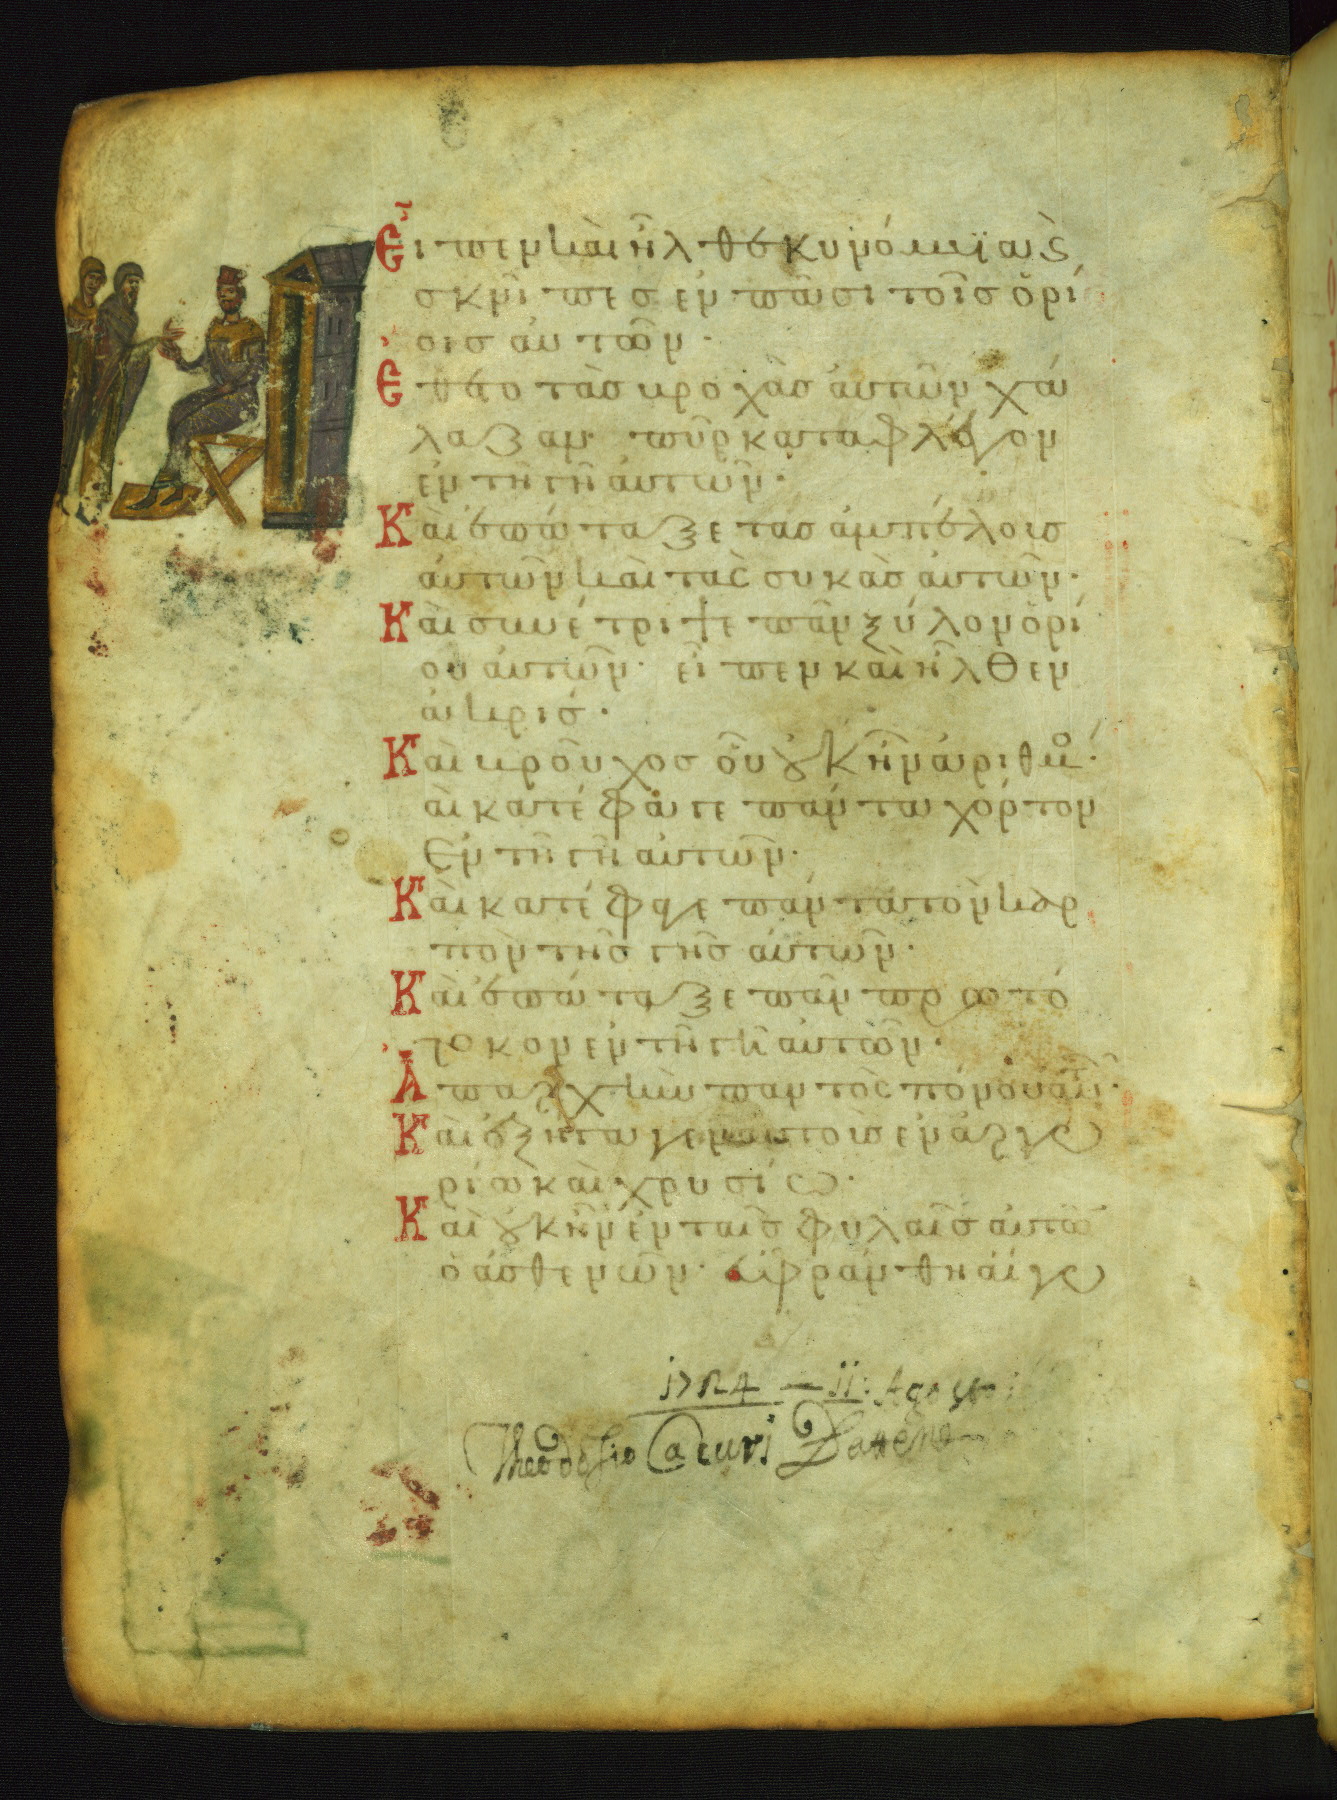 Εἶπεν καὶ ἦλθε κυνόμυϊα κ(αὶ)
σκνῖπες ἐν πᾶσι τοῖς ὁρί
οις αὐτῶν·
Ἔθετο τὰς βροχὰς αὐτῶν χά
λαζαν· πῦρ καταφλέγον
ἐν τῆ γῆ αὐτῶν·
Καὶ ἐπάταξε τὰς ἀμπέλοις
αὐτῶν καὶ τὰς συκὰς αὐτῶν·
Καὶ συνέτριψε πᾶν ξύλον ὁρί
ου αὐτῶν· εἶπεν καὶ ἦλθεν
ἀκρίς·
Καὶ βροῦχος οὗ οὐκ ἦν ἀριθμό·
αὶ κατέφαγε πάντα χόρτον
ἐν τῆ γῆ αὐτῶν·
Καὶ κατέφαγε πάντα τὸν καρ
πὸν τῆς γῆς αὐτῶν·
Καὶ ἐπάταξε πᾶν πρωτό
τοκον ἐν τῆ γῆ αὐτῶν·
Ἀπαρχὴν παντὸς πόνου αὐτῶν·
Καὶ ἐξήγαγεν αὐτοὺς ἐν ἀργυ
ρίω καὶ χρυσίω·
Καὶ οὐκ ἦν ἐν ταῖς φυλαῖς αὐτῶ
ὁ ἀσθενῶν· εὐφράνθη αἴγυ
1724 — 11: Agosto
Theodosio